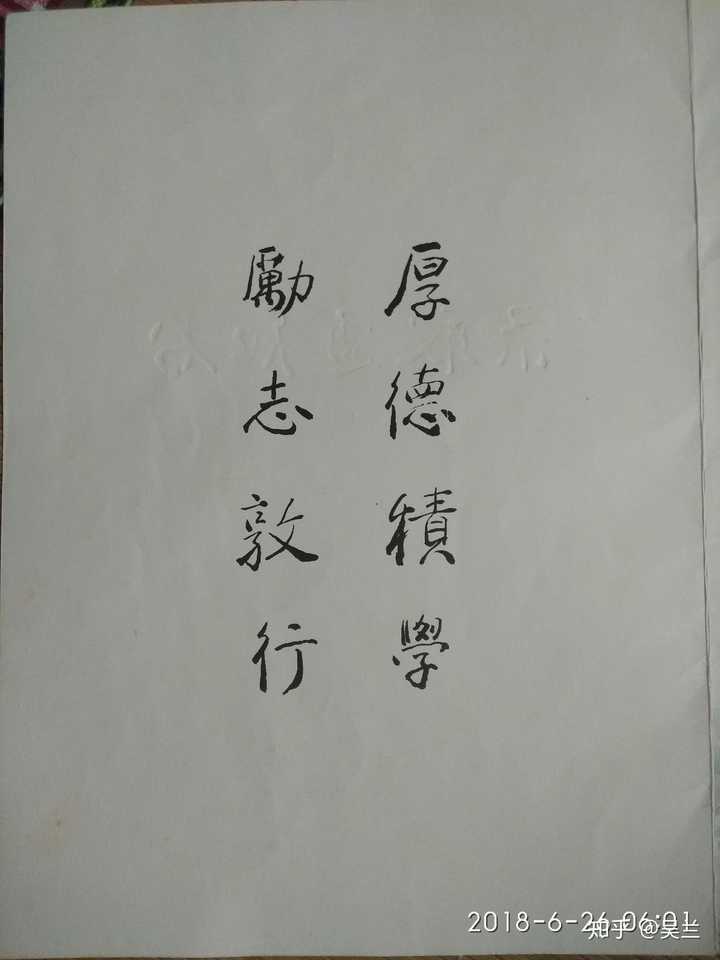 厚德積學
勵志敦行
2018-6-26 06:01
知乎 @吴兰